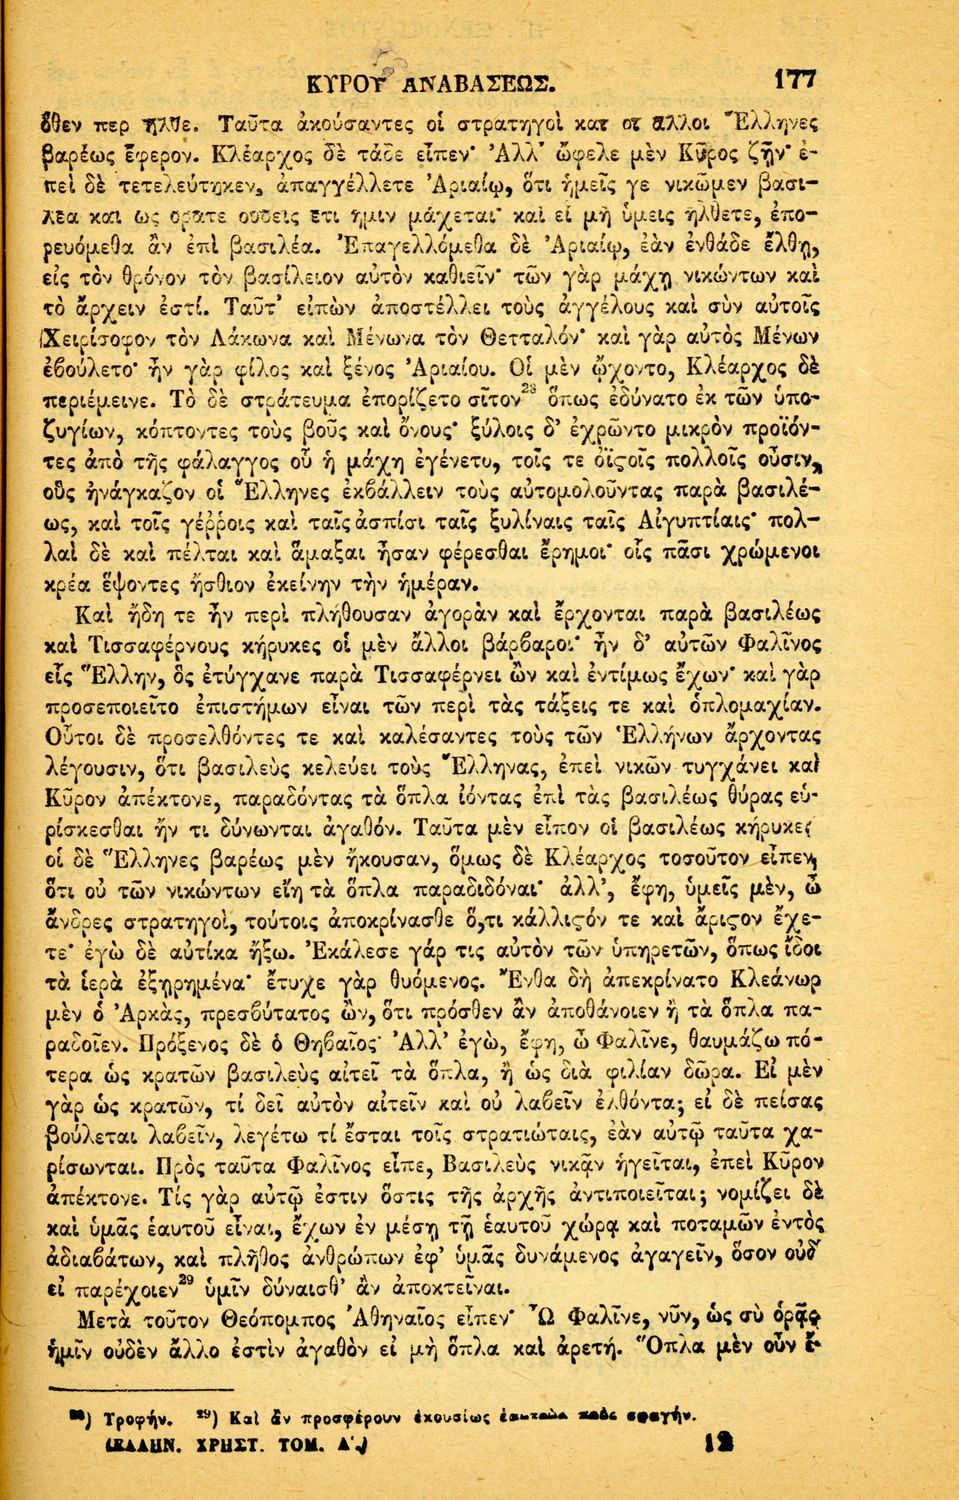 ΚΥΡΟΥ ΑΝΑΒΑΣΕΩΣ. 177
ὅθεν περ ἦλθε. Ταῦτα ἀκούσαντες οἱ στρατηγοὶ καὶ οἱ ἄλλοι Ἕλληνες
βαρέως ἔφερον. Κλέαρχος δὲ τάδε εἶπεν· Ἀλλ' ὤφελε μὲν Κῦρος ζῇν· ἐ-
πεὶ δὲ τετελεύτηκεν, ἀπαγγέλλετε Ἀριαίῳ, ὅτι ἡμεῖς γε νικῶμεν βασι-
λέα καὶ ὡς ὁρᾶτε οὐδεὶς ἔτι ἡμῖν μάχεται· καὶ εἰ μὴ ὑμεῖς ἤλθετε, ἐπο-
ρευόμεθα ἂν ἐπὶ βασιλέα. Ἐπαγελλόμεθα δὲ Ἀριαίῳ, ἐὰν ἐνθάδε ἔλθῃ,
εἰς τὸν θρόνον τὸν βασίλειον αὐτὸν καθιεῖν· τῶν γὰρ μάχῃ νικώντων καὶ
τὸ ἄρχειν ἐστί. Ταῦτ' εἰπὼν ἀποστέλλει τοὺς ἀγγέλους καὶ σὺν αὐτοῖς
Χειρίσοφον τὸν Λάκωνα καὶ Μένωνα τὸν Θετταλόν· καὶ γὰρ αὐτὸς Μένων
ἐβούλετο· ἦν γὰρ φίλος καὶ ξένος Ἀριαίου. Οἱ μὲν ᾤχοντο, Κλέαρχος δὲ
περιέμεινε. Τὸ δὲ στράτευμα ἐπορίζετο σῖτον²⁸ ὅπως ἐδύνατο ἐκ τῶν ὑπο-
ζυγίων, κόπτοντες τοὺς βοῦς καὶ ὄνους· ξύλοις δ' ἐχρῶντο μικρὸν προϊόν-
τες ἀπὸ τῆς φάλαγγος οὗ ἡ μάχη ἐγένετο, τοῖς τε ὀϊϛοῖς πολλοῖς οὖσιν,
οὓς ἠνάγκαζον οἱ Ἕλληνες ἐκβάλλειν τοὺς αὐτομολοῦντας παρὰ βασιλέ-
ως, καὶ τοῖς γέῤῥοις καὶ ταῖς ἀσπίσι ταῖς ξυλίναις ταῖς Αἰγυπτίαις· πολ-
λαὶ δὲ καὶ πέλται καὶ ἅμαξαι ἦσαν φέρεσθαι ἔρημοι· οἷς πᾶσι χρώμενοι
κρέα ἕψοντες ἤσθιον ἐκείνην τὴν ἡμέραν.
Καὶ ἤδη τε ἦν περὶ πλήθουσαν ἀγορὰν καὶ ἔρχονται παρὰ βασιλέως
καὶ Τισσαφέρνους κήρυκες οἱ μὲν ἄλλοι βάρβαροι· ἦν δ' αὐτῶν Φαλῖνος
εἷς Ἕλλην, ὃς ἐτύγχανε παρὰ Τισσαφέρνει ὢν καὶ ἐντίμως ἔχων· καὶ γὰρ
προσεποιεῖτο ἐπιστήμων εἶναι τῶν περὶ τὰς τάξεις τε καὶ ὁπλομαχίαν.
Οὗτοι δὲ προσελθόντες τε καὶ καλέσαντες τοὺς τῶν Ἑλλήνων ἄρχοντας
λέγουσιν, ὅτι βασιλεὺς κελεύει τοὺς Ἕλληνας, ἐπεὶ νικῶν τυγχάνει καὶ
Κῦρον ἀπέκτονε, παραδόντας τὰ ὅπλα ἰόντας ἐπὶ τὰς βασιλέως θύρας εὑ-
ρίσκεσθαι ἤν τι δύνωνται ἀγαθόν. Ταῦτα μὲν εἶπον οἱ βασιλέως κήρυκες
οἱ δὲ Ἕλληνες βαρέως μὲν ἤκουσαν, ὅμως δὲ Κλέαρχος τοσοῦτον εἶπεν,
ὅτι οὐ τῶν νικώντων εἴη τὰ ὅπλα παραδιδόναι· ἀλλ', ἔφη, ὑμεῖς μὲν, ὦ
ἄνδρες στρατηγοὶ, τούτοις ἀποκρίνασθε ὅ,τι κάλλιϛόν τε καὶ ἄριϛον ἔχε-
τε· ἐγὼ δὲ αὐτίκα ἥξω. Ἐκάλεσε γάρ τις αὐτὸν τῶν ὑπηρετῶν, ὅπως ἴδοι
τὰ ἱερὰ ἐξῃρημένα· ἔτυχε γὰρ θυόμενος. Ἔνθα δὴ ἀπεκρίνατο Κλεάνωρ
μὲν ὁ Ἀρκὰς, πρεσβύτατος ὢν, ὅτι πρόσθεν ἂν ἀποθάνοιεν ἢ τὰ ὅπλα πα-
ραδοῖεν. Πρόξενος δὲ ὁ Θηβαῖος· Ἀλλ' ἐγὼ, ἔφη, ὦ Φαλῖνε, θαυμάζω πό-
τερα ὡς κρατῶν βασιλεὺς αἰτεῖ τὰ ὅπλα, ἢ ὡς διὰ φιλίαν δῶρα. Εἰ μὲν
γὰρ ὡς κρατῶν, τί δεῖ αὐτὸν αἰτεῖν καὶ οὐ λαβεῖν ἐλθόντα; εἰ δὲ πείσας
βούλεται λαβεῖν, λεγέτω τί ἔσται τοῖς στρατιώταις, ἐὰν αὐτῷ ταῦτα χα-
ρίσωνται. Πρὸς ταῦτα Φαλῖνος εἶπε, Βασιλεὺς νικᾷν ἡγεῖται, ἐπεὶ Κῦρον
ἀπέκτονε. Τίς γὰρ αὐτῷ ἐστιν ὅστις τῆς ἀρχῆς ἀντιποιεῖται; νομίζει δὲ
καὶ ὑμᾶς ἑαυτοῦ εἶναι, ἔχων ἐν μέσῃ τῇ ἑαυτοῦ χώρᾳ καὶ ποταμῶν ἐντὸς
ἀδιαβάτων, καὶ πλῆθος ἀνθρώπων ἐφ' ὑμᾶς δυνάμενος ἀγαγεῖν, ὅσον οὐδ'
εἰ παρέχοιεν²⁹ ὑμῖν δύναισθ' ἂν ἀποκτεῖναι.
Μετὰ τοῦτον Θεόπομπος Ἀθηναῖος εἶπεν· Ὦ Φαλῖνε, νῦν, ὡς σὺ ὁρᾷς
ἡμῖν οὐδὲν ἄλλο ἐστὶν ἀγαθὸν εἰ μὴ ὅπλα καὶ ἀρετή. Ὅπλα μὲν οὖν ἔ-
²⁸) Τροφήν. ²⁹) Καὶ ἂν προσφέρουν ἑκουσίως πρὸς σφαγήν.
(ΕΛΛΗΝ. ΧΡΗΣΤ. ΤΟΜ. Α'.) 12